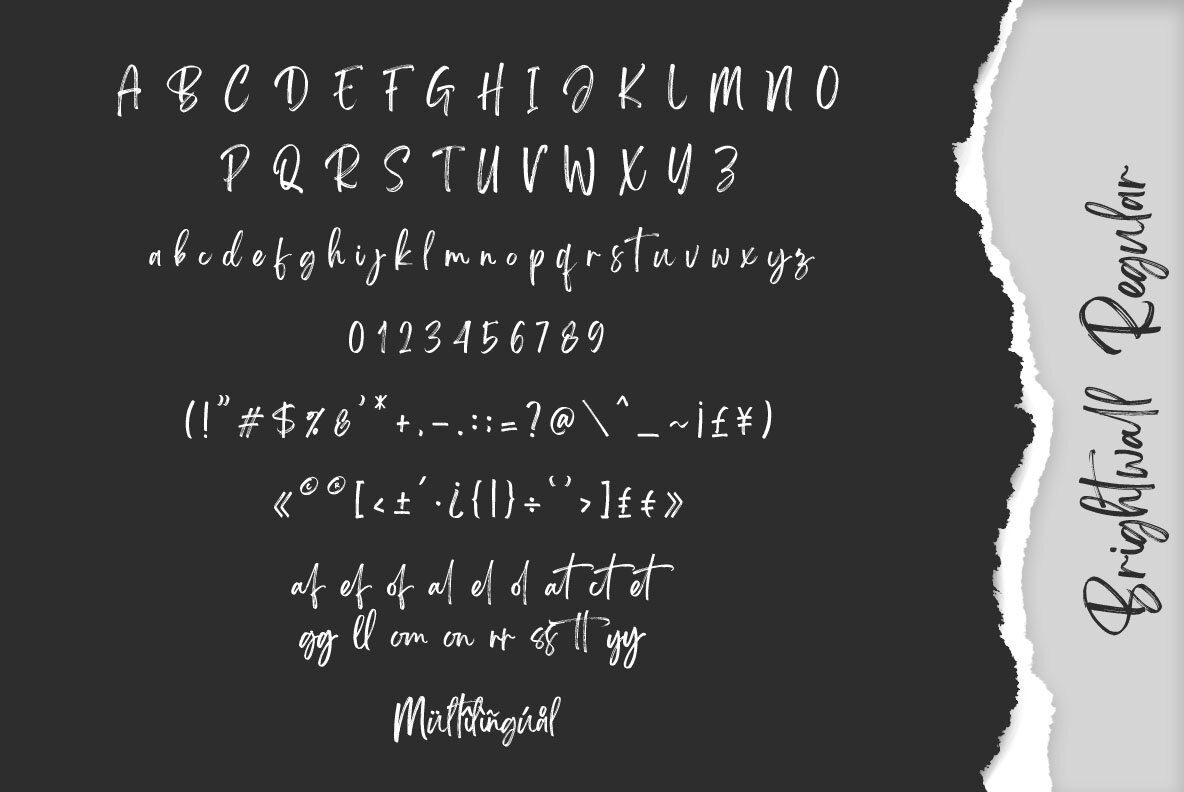 A B C D E F G H I J K L M N O
P Q R S T U V W X Y Z
a b c d e f g h i j k l m n o p q r s t u v w x y z
0 1 2 3 4 5 6 7 8 9
( ! " # $ % & ' * + , - . : ; = ? @ \ ^ _ ~ ¡ £ ¥ )
« © ® [ < ± ´ · ¿ { | } ÷ ‘ ’ > ] £ € »
af ef of al el ol at ct et
gg ll om on rr ss tt yy
Mültîlïñgúål
Brightwall Regular